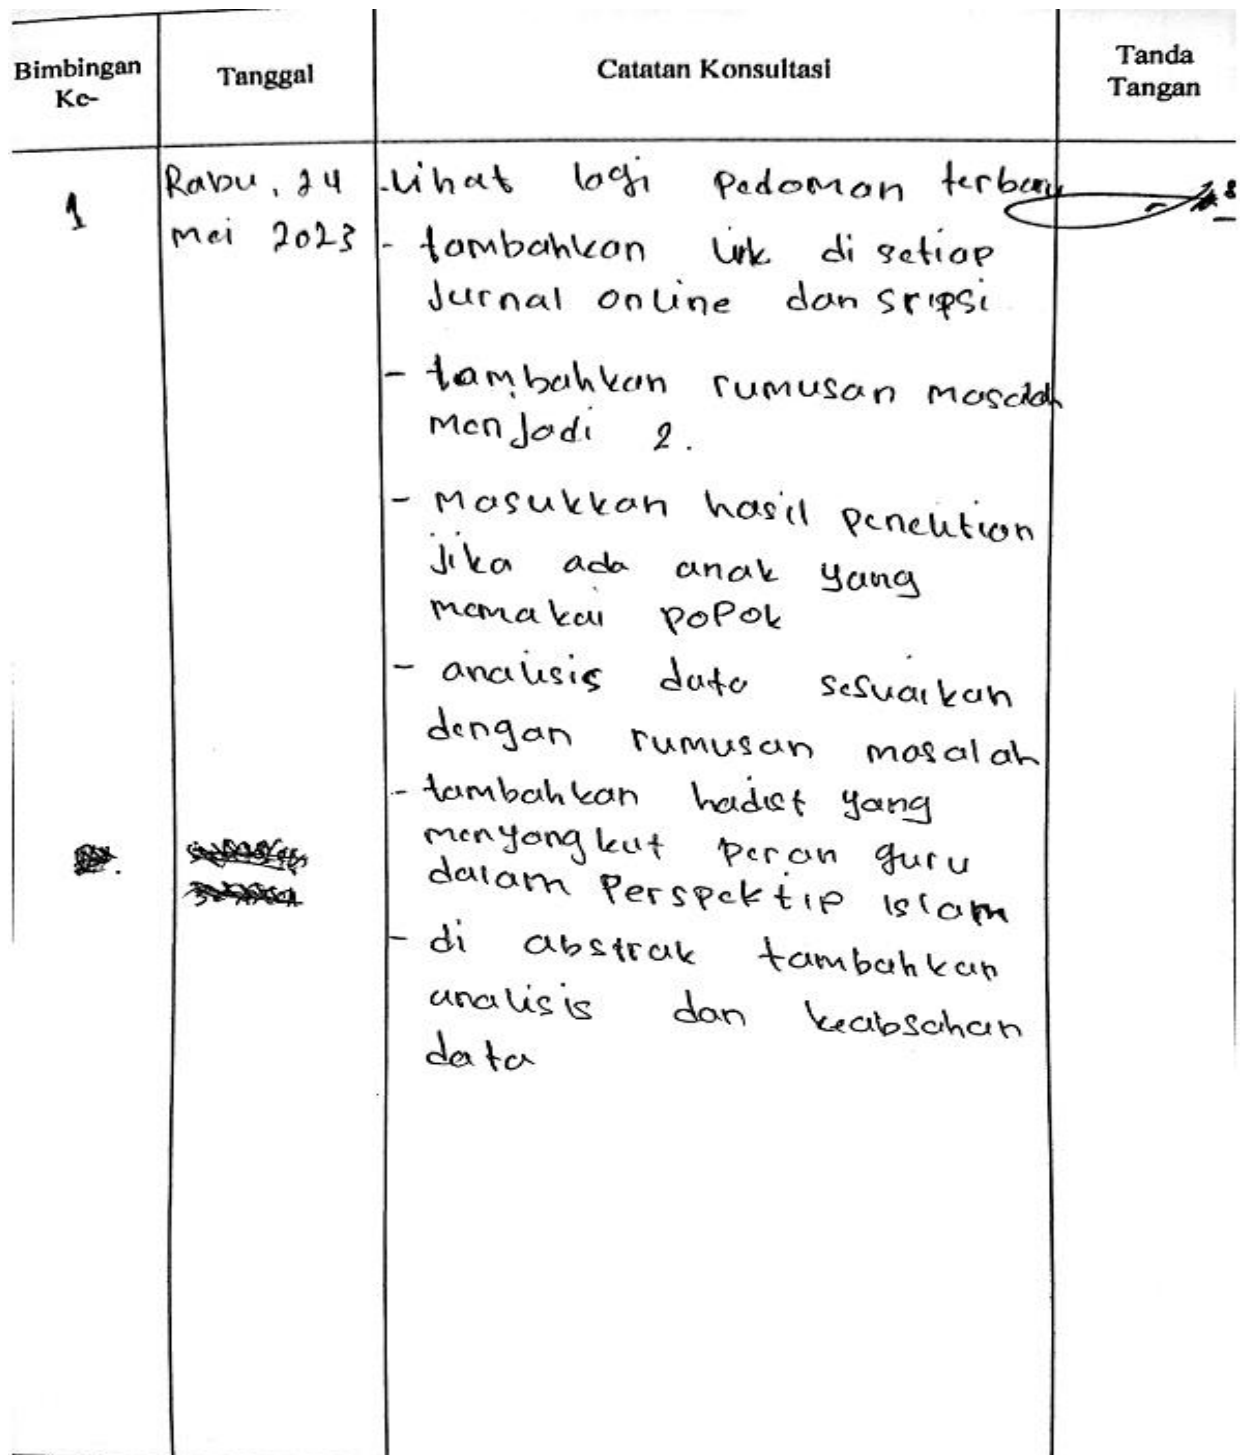 Bimbingan Ke-
Tanggal
Catatan Konsultasi
Tanda Tangan
1
Rabu, 24
mei 2023
- Lihat lagi pedoman terbaru
- tambahkan link di setiap
Jurnal online dan sripsi
- tambahkan rumusan masalah
menjadi 2.
- Masukkan hasil penelitian
jika ada anak yang
memakai popok
- analisis data sesuaikan
dengan rumusan masalah
- tambahkan hadist yang
menyangkut peran guru
dalam Perspektip islam
- di abstrak tambahkan
analisis dan keabsahan
data